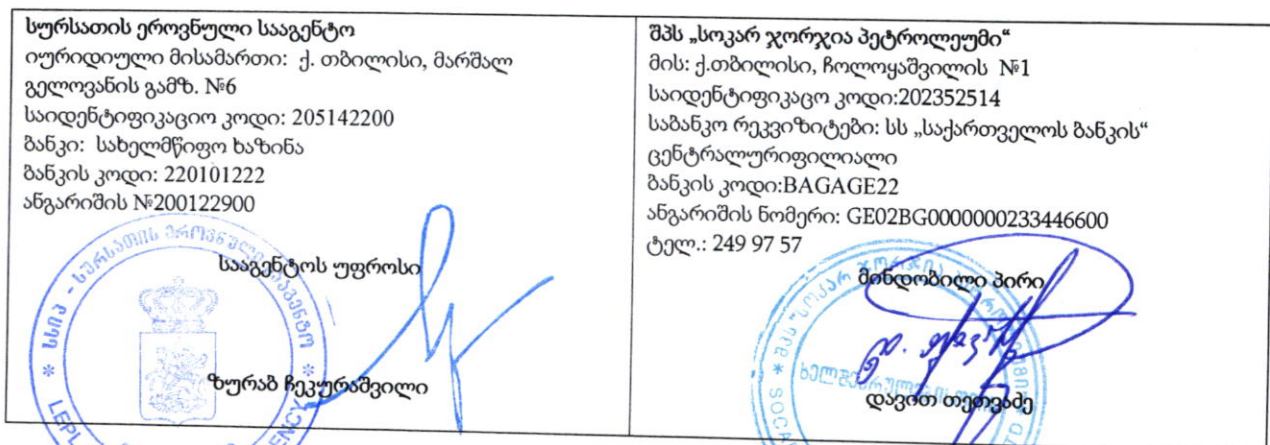 სურსათის ეროვნული სააგენტო
იურიდიული მისამართი: ქ. თბილისი, მარშალ
გელოვანის გამზ. №6
საიდენტიფიკაციო კოდი: 205142200
ბანკი: სახელმწიფო ხაზინა
ბანკის კოდი: 220101222
ანგარიშის №200122900
სააგენტოს უფროსი
ზურაბ ჩეკურაშვილი
სსიპ - სურსათის ეროვნული სააგენტო
LEPL
შპს „სოკარ ჯორჯია პეტროლეუმი“
მის: ქ.თბილისი, ჩოლოყაშვილის №1
საიდენტიფიკაცო კოდი:202352514
საბანკო რეკვიზიტები: სს „საქართველოს ბანკის“
ცენტრალურიფილიალი
ბანკის კოდი:BAGAGE22
ანგარიშის ნომერი: GE02BG0000000233446600
ტელ.: 249 97 57
მინდობილი პირი
დავით თეთვაძე
შპს სოკარ ჯორჯია